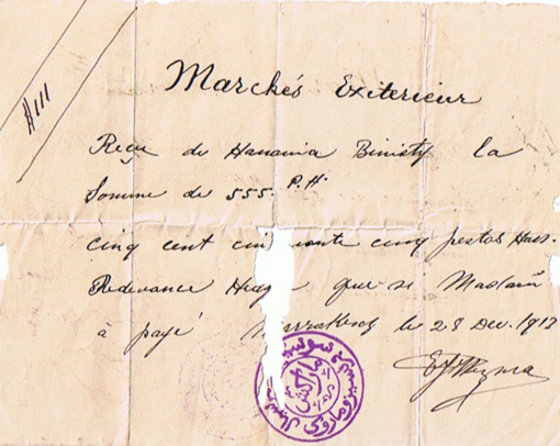 A111
Marchés Exiterieur
Reçu de Hanania Binisty la
Somme de 555. P.H.
cinq cent cin ante cinq pestas Hass.
Redevance que si Madam
à payé Marrakesch le 28 Dec. 1912
مراكش